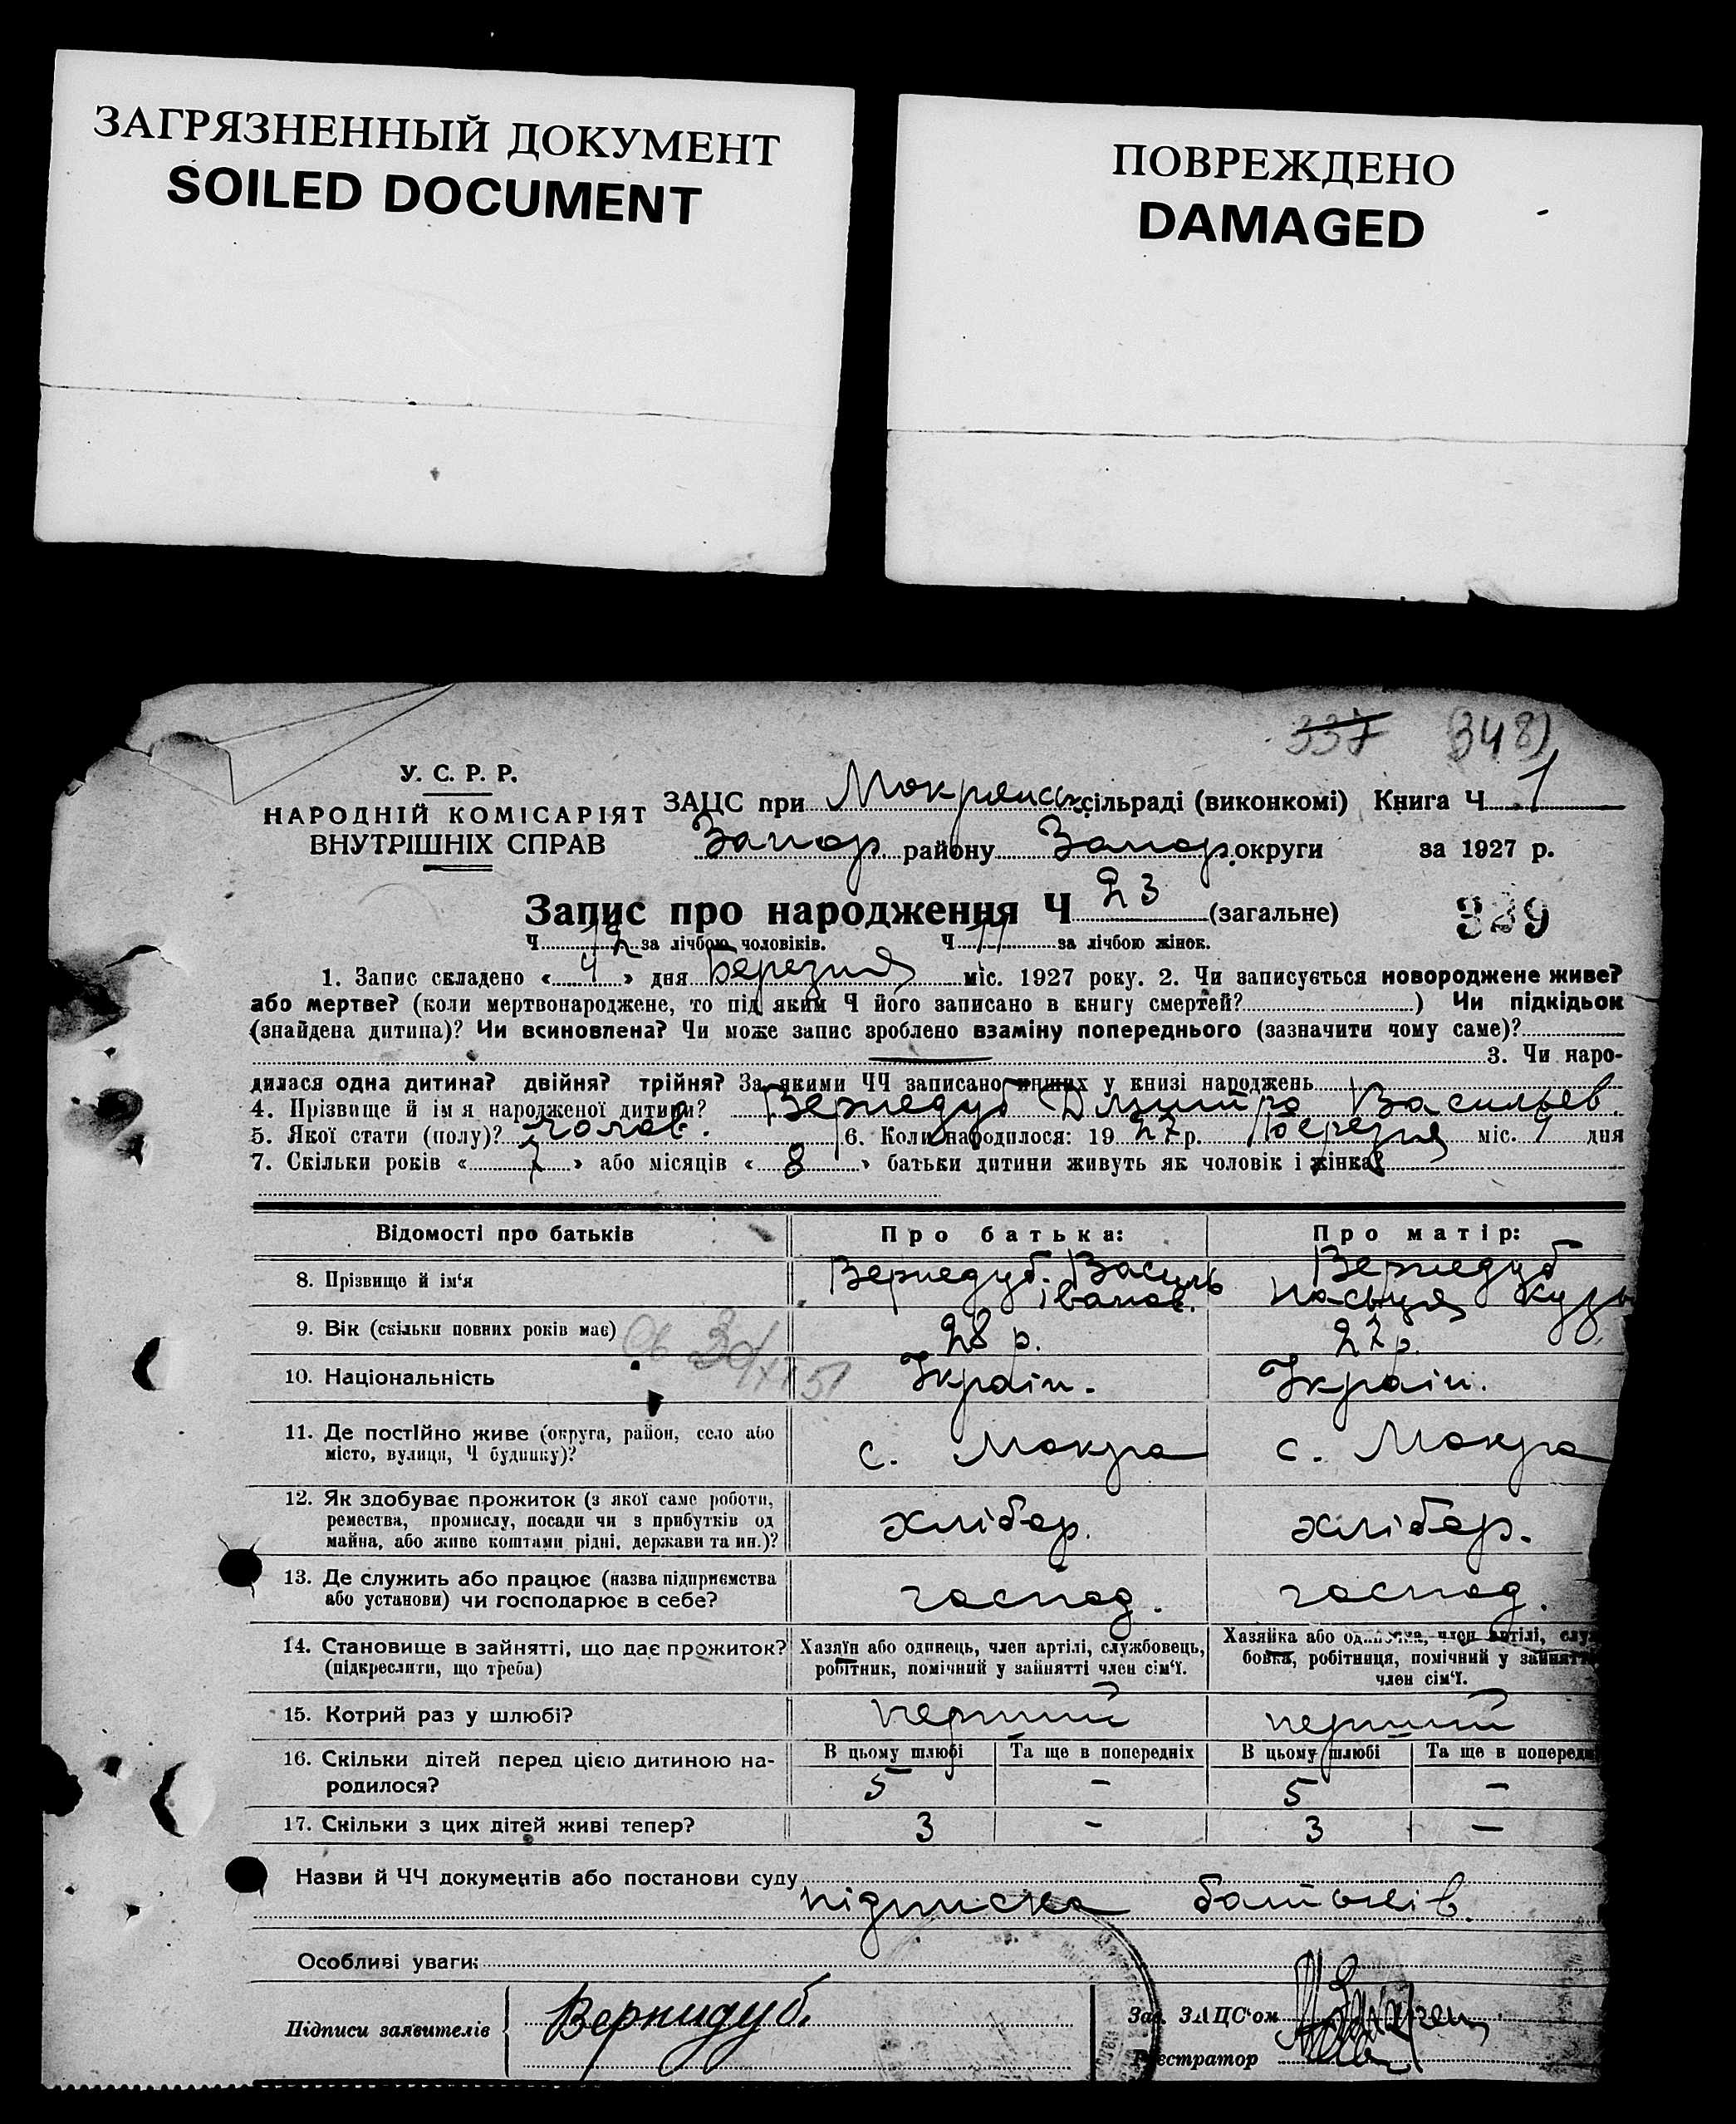 ЗАГРЯЗНЕННЫЙ ДОКУМЕНТ
SOILED DOCUMENT
ПОВРЕЖДЕНО
DAMAGED
337 348)
У. С. Р. Р.
НАРОДНІЙ КОМІСАРІЯТ
ВНУТРІШНІХ СПРАВ
ЗАЦС при Мокрянськ. сільраді (виконкомі) Книга Ч 1
Запор. району Запор. округи за 1927 р.
Запис про народження Ч 23 (загальне)
339
Ч 12 за лічбою чоловіків. Ч 11 за лічбою жінок.
1. Запис складено « 4 » дня Березня міс. 1927 року. 2. Чи записується новороджене живе?
або мертве? (коли мертвонароджене, то під яким Ч його записано в книгу смертей? ) Чи підкідьок
(знайдена дитина)? Чи всиновлена? Чи може запис зроблено взаміну попереднього (зазначити чому саме)?
3. Чи наро-
дилася одна дитина? двійня? трійня? За якими ЧЧ записано инших у книзі народжень
4. Прізвище й ім'я народженої дитини? Вернедуб Дмитро Васильев.
5. Якої стати (полу)? чолов. 6. Коли народилося: 1927 р. Березня міс. 1 дня
7. Скільки років « 7 » або місяців « 8 » батьки дитини живуть як чоловік і жінка?
Відомості про батьків Про батька: Про матір:
8. Прізвище й ім'я Вернедуб. Василь Вернедуб
іванов. Настя Кузь
9. Вік (скільки повних років має) 28 р. 27 р.
10. Національність Україн. Україн.
11. Де постійно живе (округа, район, село або
місто, вулиця, Ч будинку)? с. Мокра с. Мокра
12. Як здобуває прожиток (з якої саме роботи,
ремества, промислу, посади чи з прибутків од
майна, або живе коштами рідні, держави та ин.)? хлібор. хлібор.
13. Де служить або працює (назва підприємства
або установи) чи господарює в себе? господ. господ.
14. Становище в зайнятті, що дає прожиток?
(підкреслити, що треба)
Хазяїн або одинець, член артілі, службовець,
робітник, помічний у зайнятті член сім'ї.
Хазяйка або член артілі,
бовка, робітниця, помічний у зайнятті
член сім'ї.
15. Котрий раз у шлюбі? перший перший
16. Скільки дітей перед цією дитиною на-
родилося?
В цьому шлюбі Та ще в попередніх В цьому шлюбі Та ще в попередн
5 - 5 -
17. Скільки з цих дітей живі тепер? 3 - 3 -
Назви й ЧЧ документів або постанови суду
підписка батьків.
Особливі уваги:
Підписи заявителів Вернидуб.
Зав. ЗАЦС'ом
Реєстратор